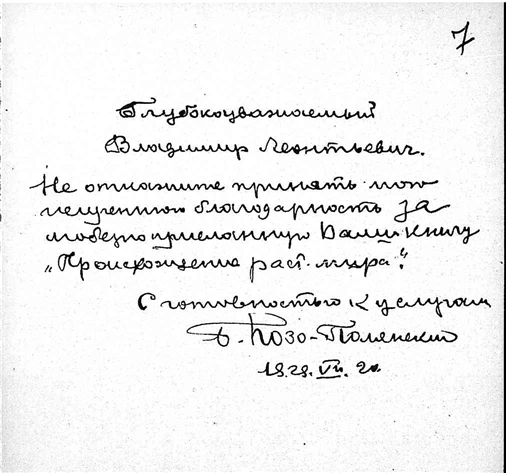 7
Глубокоуважаемый
Владимир Леонтьевич.
Не откажите принять мою
искреннюю благодарность за
любезно присланную Вами книгу
„Происхождение раст. мира".
С готовностью к услугам
Б. Козо-Полянский
1929. VII. 20.